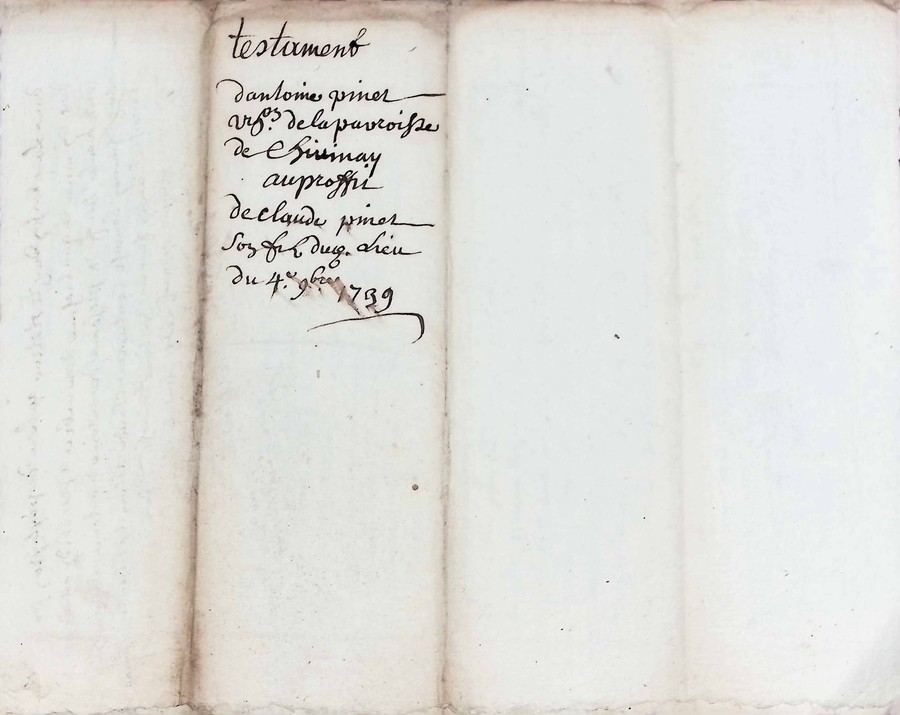 testament
dantoine pinet
vig.on de la parroisse
de Chivinay
au proffit
de claude pinet
Son du lieu
du 4.e 9bre 1739